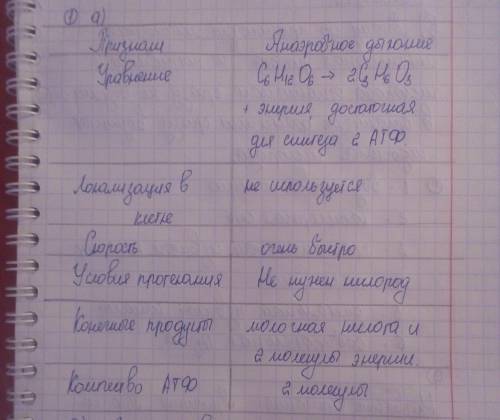 ① а)
Признаки Анаэробное дыхание
Уравнение C₆H₁₂O₆ → 2C₃H₆O₃
+ энергия, достаточная
для синтеза 2 АТФ
Локализация в не используется
клетке
Скорость очень быстро
Условия протекания Не нужен кислород
Конечные продукты молочная кислота и
2 молекулы энергии.
Количество АТФ 2 молекулы